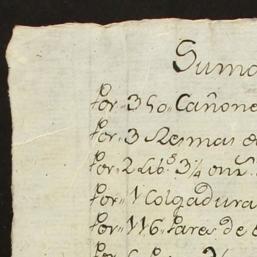 Suma
Por 350 Cañone
Por 3 Resmas d
Por 2 Lib.s 3¼ onz.
Por 1 Colgadura
Por 116 Pares de